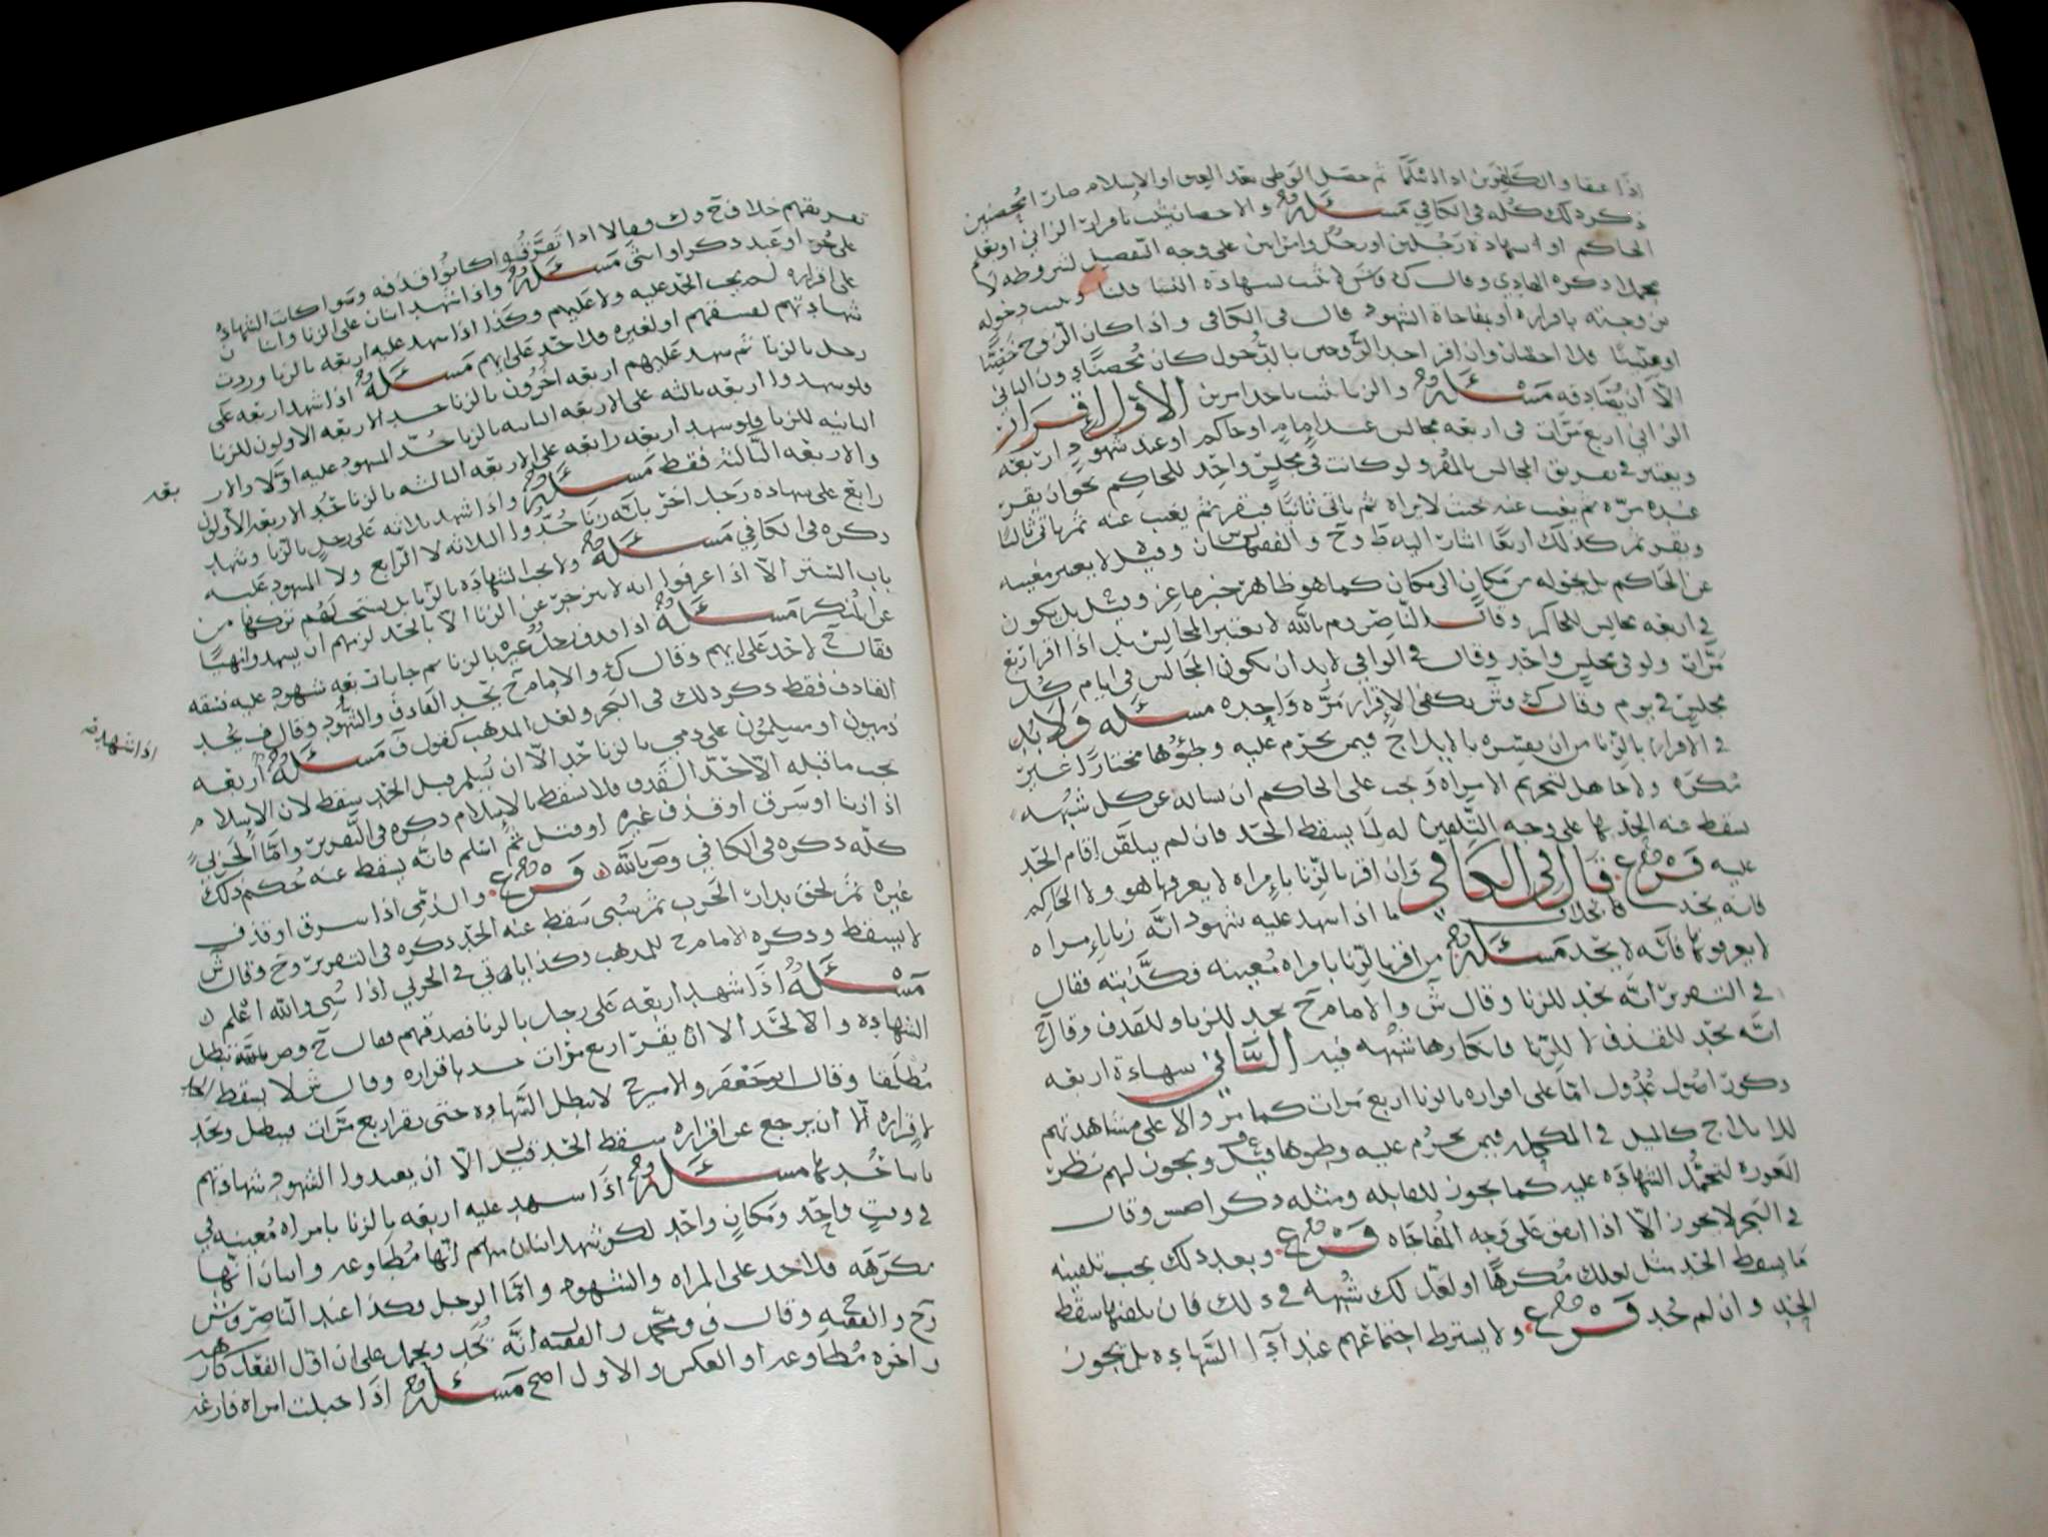 اذا عتقا والكافرين اذا اسلما ثم حصل الوطي بعد العتق او الاسلام صارا محصنين
ذكر ذلك كله في الكافي مسئلة والاحصان يثبت باقرار الزاني او بعلم
الحاكم او شهادة رجلين او رجل وامراتين على وجه التفصيل لشروطه لا
مجملا ذكره الهادي وقال ك وش لا تثبت بشهادة النسا قلنا وثبت دخوله
بزوجته باقراره او بمفاجاة الشهود قال في الكافي واذا كان الزوج خصيًّا
او عنينًا فلا احصان وان اقر احد الزوجين بالدخول كان محصنًا دون الثاني
الا ان يصادقه مسئلة والزنا يثبت باحد امرين الأول إقرار
الزاني اربع مرات في اربعة مجالس عند إمام او حاكم او عند شهود اربعة
ويعتبر في تفريق المجالس بالمقر ولو كانت في مجلس واحد للحاكم نحو ان يقر
عنده مرة ثم يغيب عنه بحيث لا يراه ثم ياتي ثانيًا فيقر ثم يغيب عنه ثم ياتي ثالثًا
ويقر ثم كذلك اربعًا اشار اليه ط وح والفقيهان س وقيل لا يعتبر مغيبه
عن الحاكم بل تحوله من مكان الى مكان كما هو ظاهر خبر ماعز وقيل بل يكون
في اربعة مجالس للحاكم وقال الناصر وم بالله لا يعتبر المجالس بل اذا اقر اربع
مرات ولو في مجلس واحد وقال في الوافي لا بد ان تكون المجالس في ايام كل
مجلس في يوم وقال ك وش يكفي الإقرار مرة واحدة مسئلة ولا بد
في الاقرار بالزنا من ان يفسره بالإيلاج فيمن يحرم عليه وطئها مختارًا غير
مكره ولا جاهل لتحريم الامراة ويجب على الحاكم ان يساله عن كل شبهة
يسقط عنه الحد بها على وجه التلقين له لما يسقط الحد فان لم يتلقن اقام الحد
عليه فرع قال في الكافي وان اقر بالزنا بإمراة لا يعرفها هو ولا الحاكم
فانه يحد بخلاف ما اذا شهد عليه شهود انه زنا بإمراة
لا يعرفونها فانه لا يحد مسئلة من اقر بالزنا بامراة معينة فكذبته فقال
في التحرير انه يحد للزنا وقال ش والامام ح يحد للزنا وللقذف وقال ح
انه يحد للقذف لا للزنا وانكارها شبهة فيه الثاني شهادة اربعة
ذكور اصول عدول اما على اقراره بالزنا اربع مرات كما مر والا على مشاهدتهم
للايلاج كالميل في المكحلة فيمن يحرم عليه وطوها قيل ويجوز لهم نظر
العورة لتحمل الشهادة عليه كما يجوز للقابلة ومثله ذكر وقال
في البحر لا يجوز الا اذا اتفق على وجه المفاجاة فرع وبعد ذلك يجب تلقينه
ما يسقط الحد مثل لعلك مكرها او لعل لك شبهة في ذلك فان تلقنها سقط
الحد وان لم يحد فرع ولا يشترط اجتماعهم عند اداء الشهادة بل يجوز
تفريقهم خلاف ح وك وقالا اذا تفرقوا كانوا قذفة وسوا كانت الشهادة
على حر او عبد ذكر او انثى مسئلة واذا شهد اثنان على الزنا واثنان
على اقراره لم يجب الحد عليه ولا عليهم وكذا اذا شهد عليه اربعة بالزنا وردت
شهادتهم لفسقهم او لغيره فلا حد على ايهم مسئلة اذا شهد اربعة على
رجل بالزنا ثم شهد عليهم اربعة اخرون بالزنا حد الاربعة الاولون للزنا
فلو شهدوا اربعة ثالثة على الاربعة الثانية بالزنا حد المشهود عليه اولا والار
بعة
الثانية للزنا فلو شهد اربعة رابعة على الاربعة الثالثة بالزنا حد الاربعة الاولون
والاربعة الثالثة فقط مسئلة واذا شهد ثلاثة على رجل بالزنا وشهد
رابع على شهادة رجل اخر بانه زنا حدوا الثلاثة لا الرابع ولا المشهود عليه
ذكره في الكافي مسئلة ولا يجب الشهادة بالزنا بل يستحب لهم تركها من
باب الستر الا اذا عرفوا انه لا ينزجر عن الزنا الا بالحد لزمهم ان يشهدوا نهيًا
عن المنكر مسئلة اذا قذف رجل غيره بالزنا ثم جا باربعة شهود عليه فسقة
فقال ح لا حد على ايهم وقال ك والامام ح يحد القاذف والشهود وقال ف يحد
القاذف فقط ذكر ذلك في البحر ولعل المذهب كقول ف مسئلة اربعة
اذا شهد
ذميون او مسلمون على ذمي بالزنا حد الا ان يسلم قبل الحد سقط لان الاسلام
يجب ما قبله الا حد القذف فلا يسقط بالإسلام ذكره في التحرير واما الحربي
اذا زنا او سرق او قذف غيره او قتل ثم اسلم فانه يسقط عنه حكم ذلك
كله ذكره في الكافي وص بالله فرع والذمي اذا سرق او قذف
غيره ثم لحق بدار الحرب ثم سبي سقط عنه الحد ذكره في التحرير وح وقال ش
لا يسقط وذكره الامام ح للمذهب وكذا ياتي في الحربي اذا سبي والله اعلم
مسئلة اذا شهد اربعة على رجل بالزنا فصدقهم فقال ح وص بالله تبطل
الشهادة والا لحد الا ان يقر اربع مرات حد باقراره وقال ش لا يسقط
مطلقا وقال ابو جعفر والامير ح لا تبطل الشهادة حتى يقر اربع مرات فتبطل ويحد
لإقراره الا ان يرجع عن اقراره سقط الحد قيل الا ان يعيدوا الشهود شهادتهم
مسئلة اذا شهد عليه اربعة بالزنا بامراة معينة في
في وقت واحد ومكان واحد لكن شهد اثنان منهم انها مطاوعة واثنان انها
مكرهة فلا حد على المراة والشهود واما الرجل فكذا عند الناصر وش
وح والفقيه ح وقال ف ومحمد والفقيه انه يحد ويحمل على ان اول الفعل كان
واخره مطاوعة او العكس والاول اصح مسئلة اذا حبلت امراة فارغة